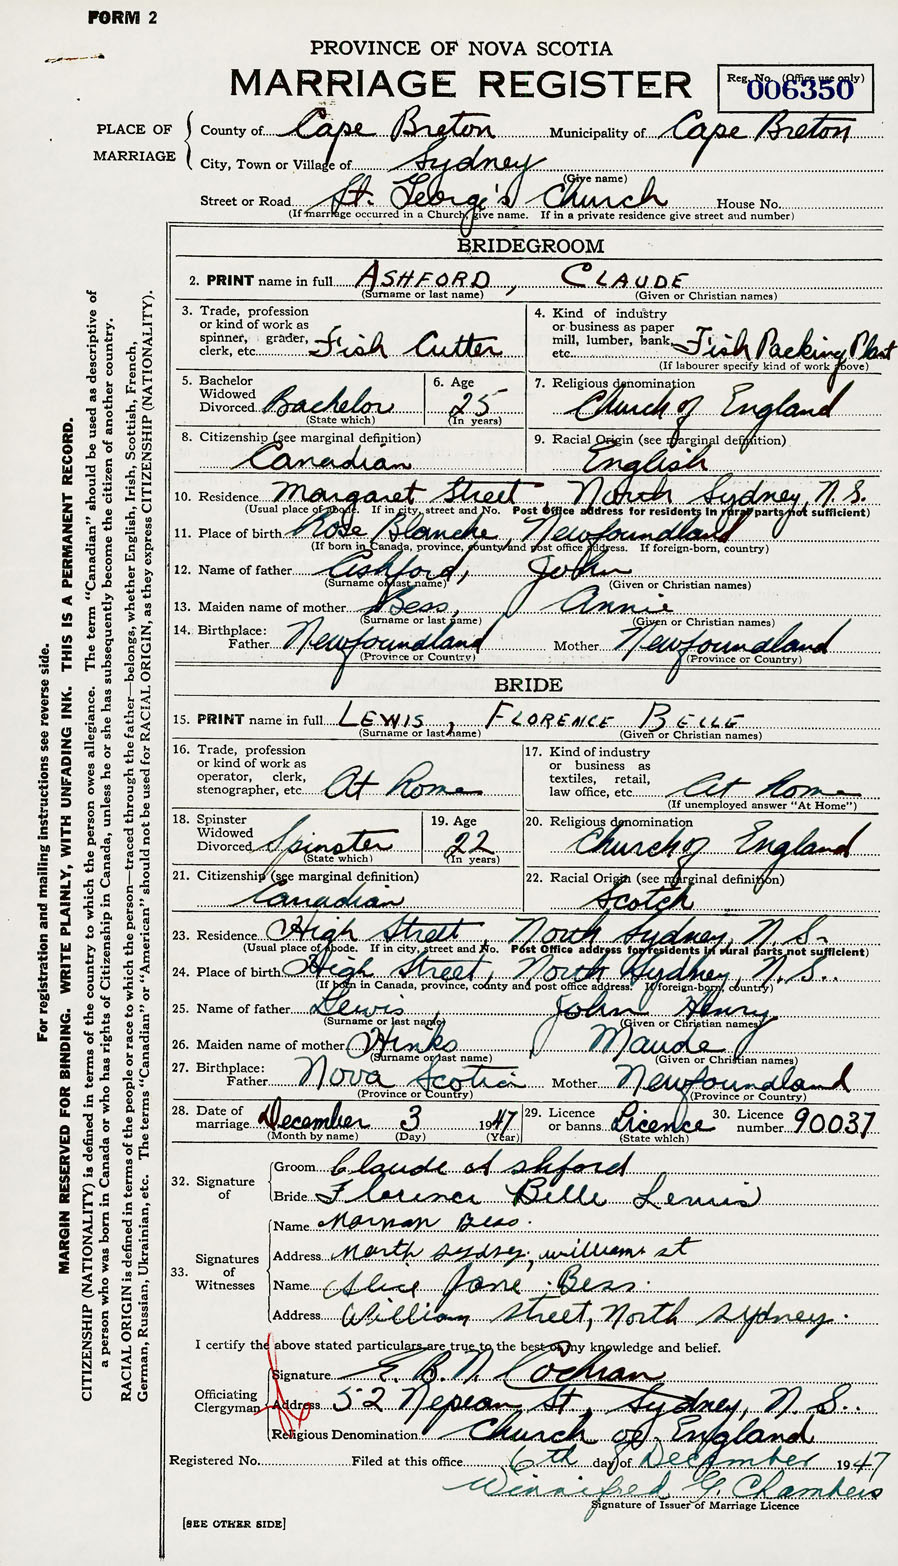 FORM 2
PROVINCE OF NOVA SCOTIA
MARRIAGE REGISTER
Reg. No. (Office use only)
006350
PLACE OF MARRIAGE
County of Cape Breton Municipality of Cape Breton
City, Town or Village of Sydney
(Give name)
Street or Road St. George's Church House No.
(If marriage occurred in a Church, give name. If in a private residence give street and number)
BRIDEGROOM
2. PRINT name in full ASHFORD, CLAUDE
(Surname or last name) (Given or Christian names)
3. Trade, profession or kind of work as spinner, grader, clerk, etc. Fish Cutter
4. Kind of industry or business as paper mill, lumber, bank, etc. Fish Packing Plant
(If labourer specify kind of work above)
5. Bachelor Widowed Divorced Bachelor
(State which)
6. Age 25
(In years)
7. Religious denomination Church of England
8. Citizenship (see marginal definition) Canadian
9. Racial Origin (see marginal definition) English
10. Residence Margaret Street, North Sydney, N.S.
(Usual place of abode. If in city, street and No. Post Office address for residents in rural parts not sufficient)
11. Place of birth Rose Blanche, Newfoundland
(If born in Canada, province, county and post office address. If foreign-born, country)
12. Name of father Ashford, John
(Surname or last name) (Given or Christian names)
13. Maiden name of mother Bess, Annie
(Surname or last name) (Given or Christian names)
14. Birthplace: Father Newfoundland Mother Newfoundland
(Province or Country) (Province or Country)
BRIDE
15. PRINT name in full LEWIS, FLORENCE BELLE
(Surname or last name) (Given or Christian names)
16. Trade, profession or kind of work as operator, clerk, stenographer, etc. At Home
17. Kind of industry or business as textiles, retail, law office, etc. At Home
(If unemployed answer "At Home")
18. Spinster Widowed Divorced Spinster
(State which)
19. Age 22
(In years)
20. Religious denomination Church of England
21. Citizenship (see marginal definition) Canadian
22. Racial Origin (see marginal definition) Scotch
23. Residence High Street North Sydney, N.S.
(Usual place of abode. If in city, street and No. Post Office address for residents in rural parts not sufficient)
24. Place of birth High Street, North Sydney, N.S..
(If born in Canada, province, county and post office address. If foreign-born, country)
25. Name of father Lewis, John Henry
(Surname or last name) (Given or Christian names)
26. Maiden name of mother Hinks Maude
(Surname or last name) (Given or Christian names)
27. Birthplace: Father Nova Scotia Mother Newfoundland
(Province or Country) (Province or Country)
28. Date of marriage December 3 1947
(Month by name) (Day) (Year)
29. Licence or banns Licence
(State which)
30. Licence number 90037
32. Signature of
Groom Claude Ashford
Bride Florence Belle Lewis
33. Signatures of Witnesses
Name Norman Bess.
Address North Sydney, william st
Name Alice Jane Bess.
Address William Street, North Sydney.
I certify the above stated particulars are true to the best of my knowledge and belief.
Officiating Clergyman
Signature E. B. N. Cochran
Address 52 Nepean St, Sydney, N.S..
Religious Denomination Church of England
Registered No. Filed at this office 6th day of December 1947
Winnifred G. Chambers
Signature of Issuer of Marriage Licence
[SEE OTHER SIDE]
For registration and mailing instructions see reverse side.
MARGIN RESERVED FOR BINDING. WRITE PLAINLY, WITH UNFADING INK. THIS IS A PERMANENT RECORD.
CITIZENSHIP (NATIONALITY) is defined in terms of the country to which the person owes allegiance. The term "Canadian" should be used as descriptive of
a person who was born in Canada or who has rights of Citizenship in Canada, unless he or she has subsequently become the citizen of another country.
RACIAL ORIGIN is defined in terms of the people or race to which the person—traced through the father—belongs, whether English, Irish, Scottish, French,
German, Russian, Ukrainian, etc. The terms "Canadian" or "American" should not be used for RACIAL ORIGIN, as they express CITIZENSHIP (NATIONALITY).